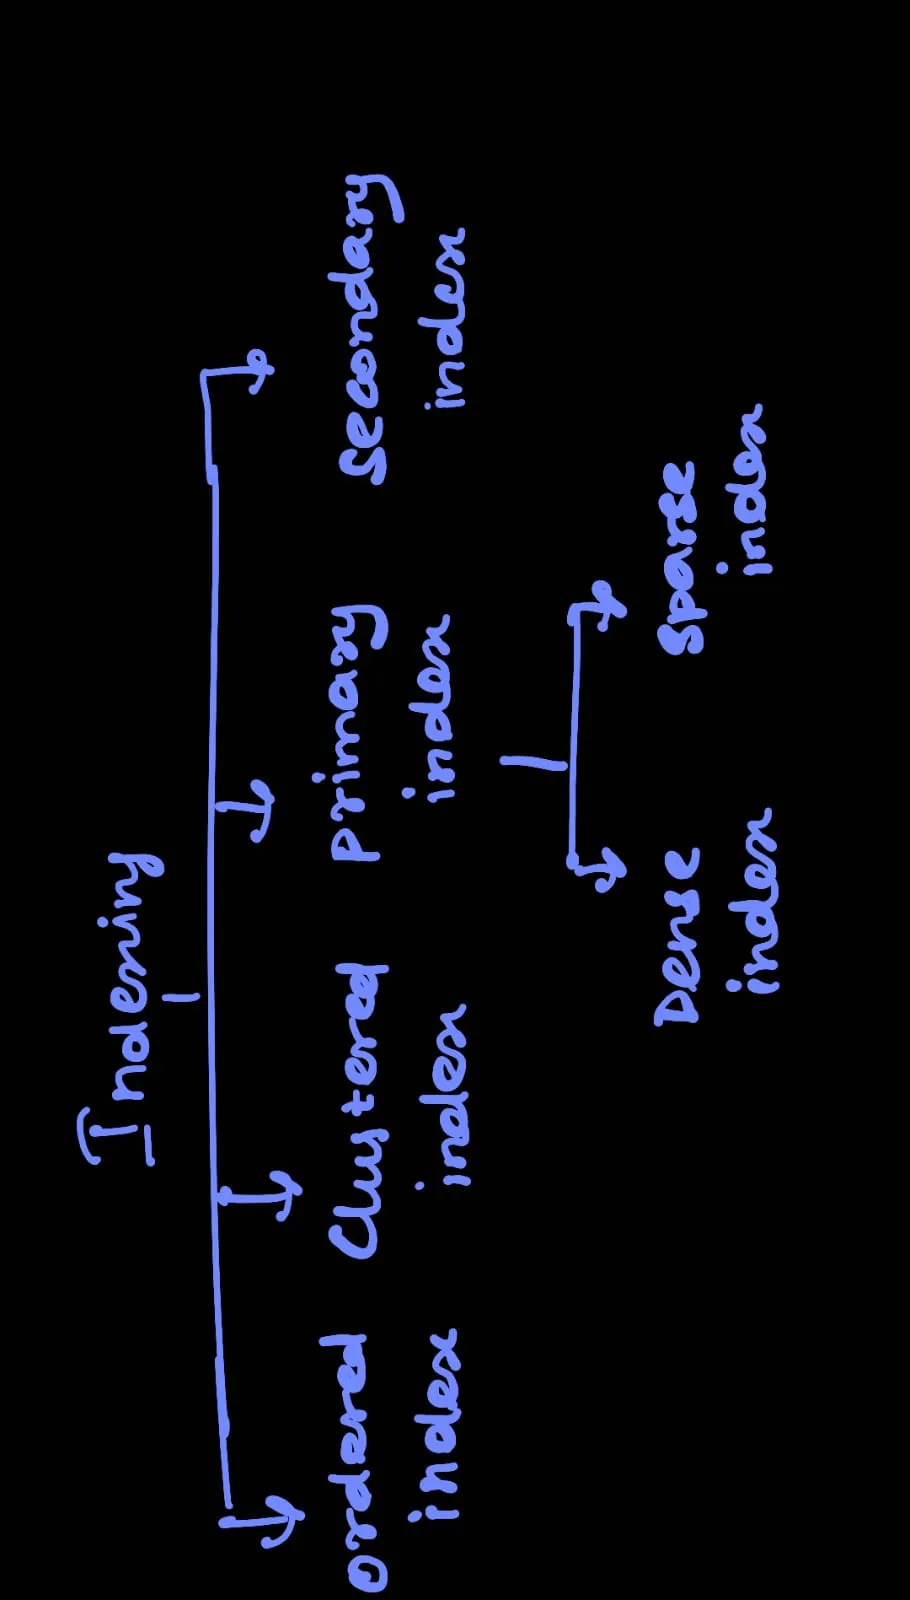 Indexing
ordered index
Clustered index
primary index
Secondary index
Dense index
Sparse index